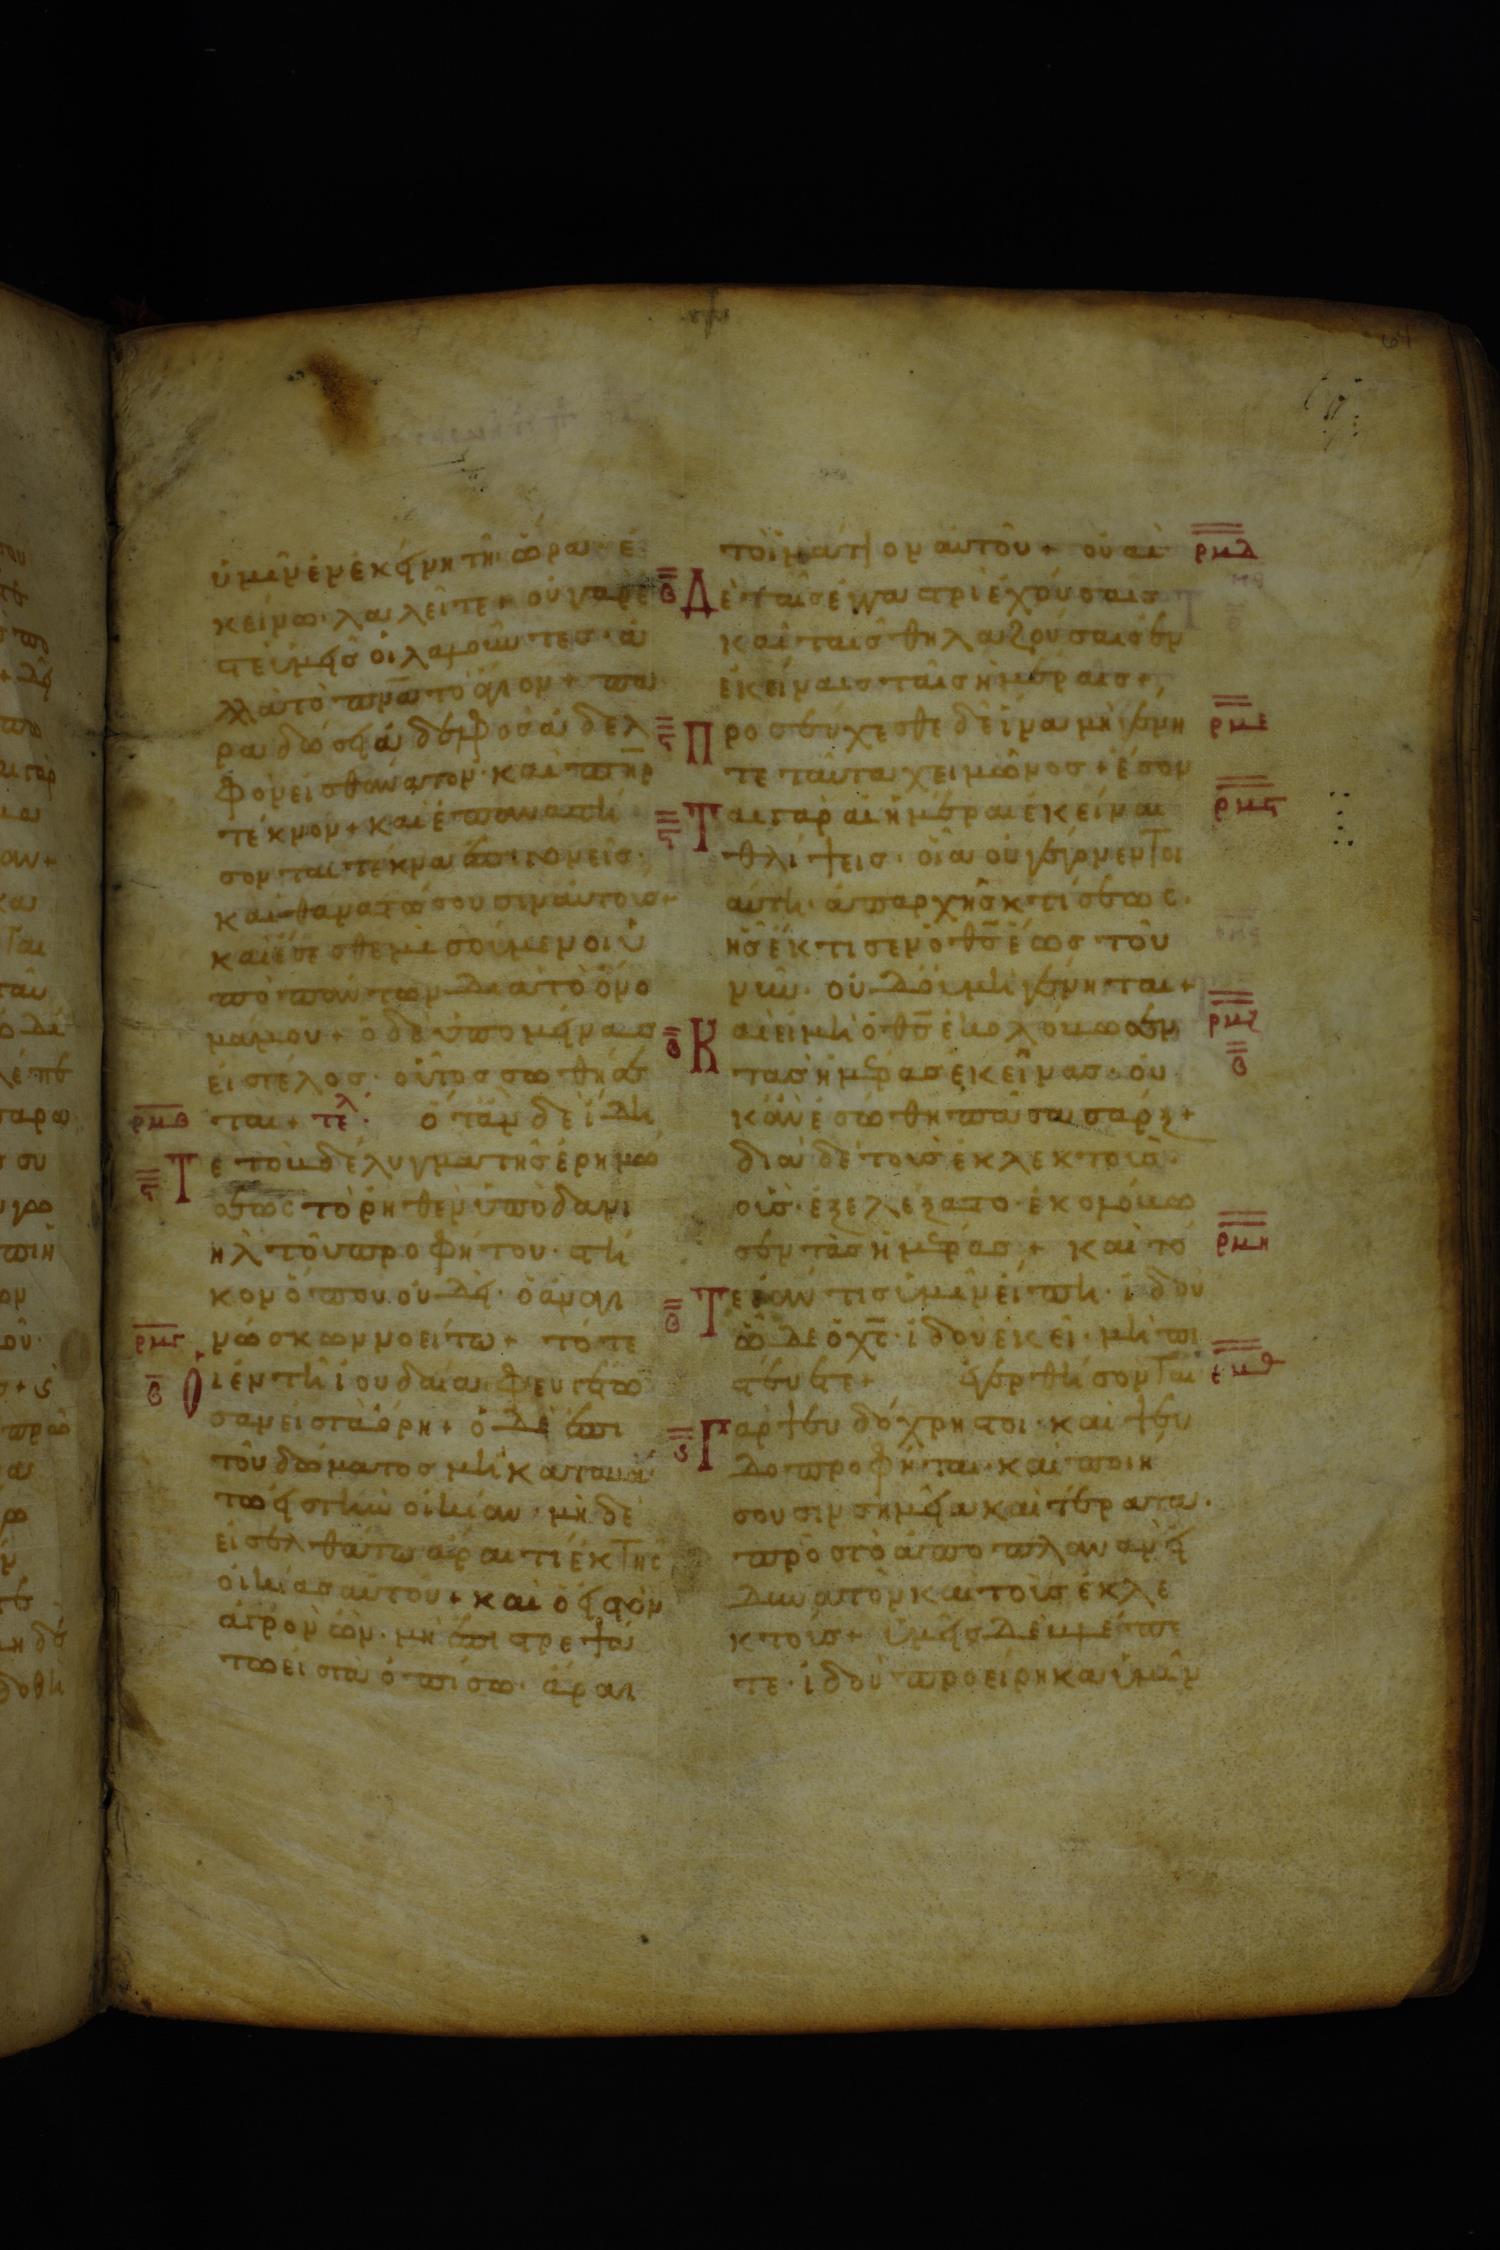 ὑμῖν ἐν ἐκείνη τῆ ὥρα· ἐ
κεῖνο· λαλεῖτε + οὐ γάρ ἐ
στε ὑμεῖς οἱ λαλοῦντες· ἀ
λλὰ τὸ πνα τὸ ἅγιον + πα
ραδώσει ἀδελφὸς ἀδελ
φὸν εἰς θάνατον· καὶ πηρ
τέκνον + καὶ ἐπαναστή
σονται τέκνα ἐπι γονεῖς·
καὶ θανατώσουσιν αὐτούς +
καὶ ἔσεσθε μισούμενοι ὑ
πὸ πάντων διὰ τὸ ὄνο
μα μου + ὁ δὲ ὑπομείνας
εἰς τέλος· οὗτος σωθήσε
ρμβ ται + τελ· ὅταν δὲ ἴδη
ϛ Τε τὸ βδέλυγμα τῆς ἐρημώ
σεως τὸ ρηθὲν ὑπὸ δανι
ὴλ τοῦ προφήτου· στή
κον ὅπου οὐ δεῖ· ὁ ἀναγι
ρμγ νώσκων νοείτω + τότε
β Οἱ ἐν τῆ ἰουδαία φευγέτω
σαν εἰς τὰ ὄρη + ὁ δὲ ἐπι
τοῦ δώματος μὴ καταβά
τω εἰς τὴν οἰκίαν· μὴ δὲ
εἰσελθάτω ἆραι τι ἐκ τῆς
οἰκίας αὐτοῦ + καὶ ὁ εἰς τὸν
ἀγρὸν ὤν· μὴ ἐπιστρεψά
τω εἰς τὰ ὀπίσω· ἆραι
το ἱμάτιον αὐτοῦ + οὐαὶ ρμδ
β Δὲ ταῖς ἐν γαστρὶ ἐχούσαις
καὶ ταῖς θηλαζούσαις ἐν
ἐκείναις ταῖς ἡμέραις +
ϛ Προσεύχεσθε δὲ ἵνα μὴ γένη ρμε
τε ταῦτα χειμῶνος + ἔσον
ϛ Ται γὰρ αἱ ἡμέραι ἐκεῖναι ρμϛ
θλίψεις· οἷα οὐ γέγονεν τοι
αύτη· ἀπαρχῆς κτίσεως·
ἧς ἔκτισεν ὁ θς ἕως τοῦ
νῦν· οὐ δ' οὐ μὴ γένηται +
β Καὶ εἰ μὴ ὁ θς ἐκολόβωσεν ρμζ
τὰς ἡμέρας ἐκείνας· οὐ β
κἂν ἐσώθη πᾶσα σάρξ +
διὰ δὲ τοὺς ἐκλεκτοὺς
οὓς ἐξελέξατο· ἐκολόβω
σεν τὰς ἡμέρας + καὶ τό ρμη
β Τε ἐάν τις ὑμῖν εἴπη· ἰδοὺ
ὧδε ὁ χς· ἰδοὺ ἐκεῖ· μὴ πι
στεύετε + ἐγερθήσονται ρμθ
ϛ Γὰρ ψευδόχρηστοι· καὶ ψευ
δοπροφῆται· καὶ ποιή
σουσιν σημεῖα καὶ τέρατα·
πρὸς τὸ ἀποπλανᾶν εἰ
δυνατὸν καὶ τοὺς ἐκλε
κτούς + ὑμεῖς δὲ βλέπε
τε· ἰδοὺ προείρηκα ὑμῖν